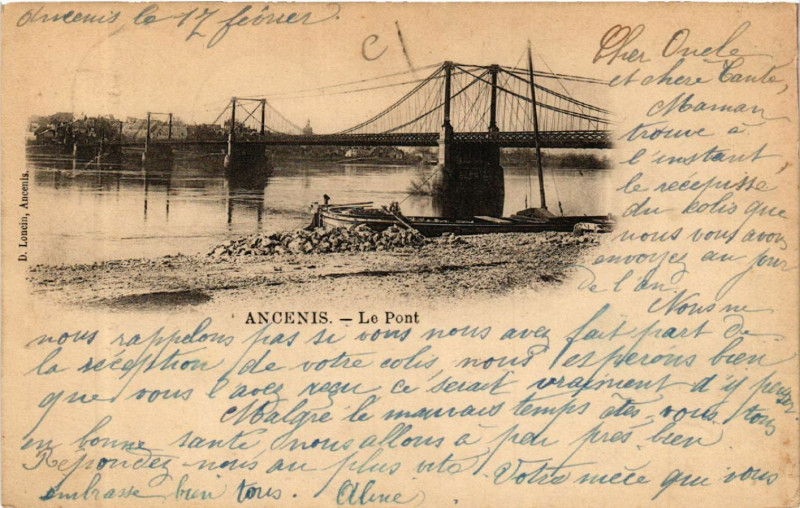 Ancenis, le 17 février.
Cher Oncle
et chère Tante,
Maman
trouve à
l'instant,
le récépissé
du colis que
nous vous avons
envoyez au jour
de l'an
D. Loncin, Ancenis.
ANCENIS. — Le Pont
Nous ne
nous rappelons pas si vous nous avez fait part de
la réception de votre colis, nous esperons bien
que vous l'avez reçu ce serait vraiment d'y penser.
Malgré le mauvais temps êtes-vous tous
en bonne santé nous allons à peu près bien
Répondez-nous au plus vite Votre nièce qui vous
embrasse bien tous. Aline